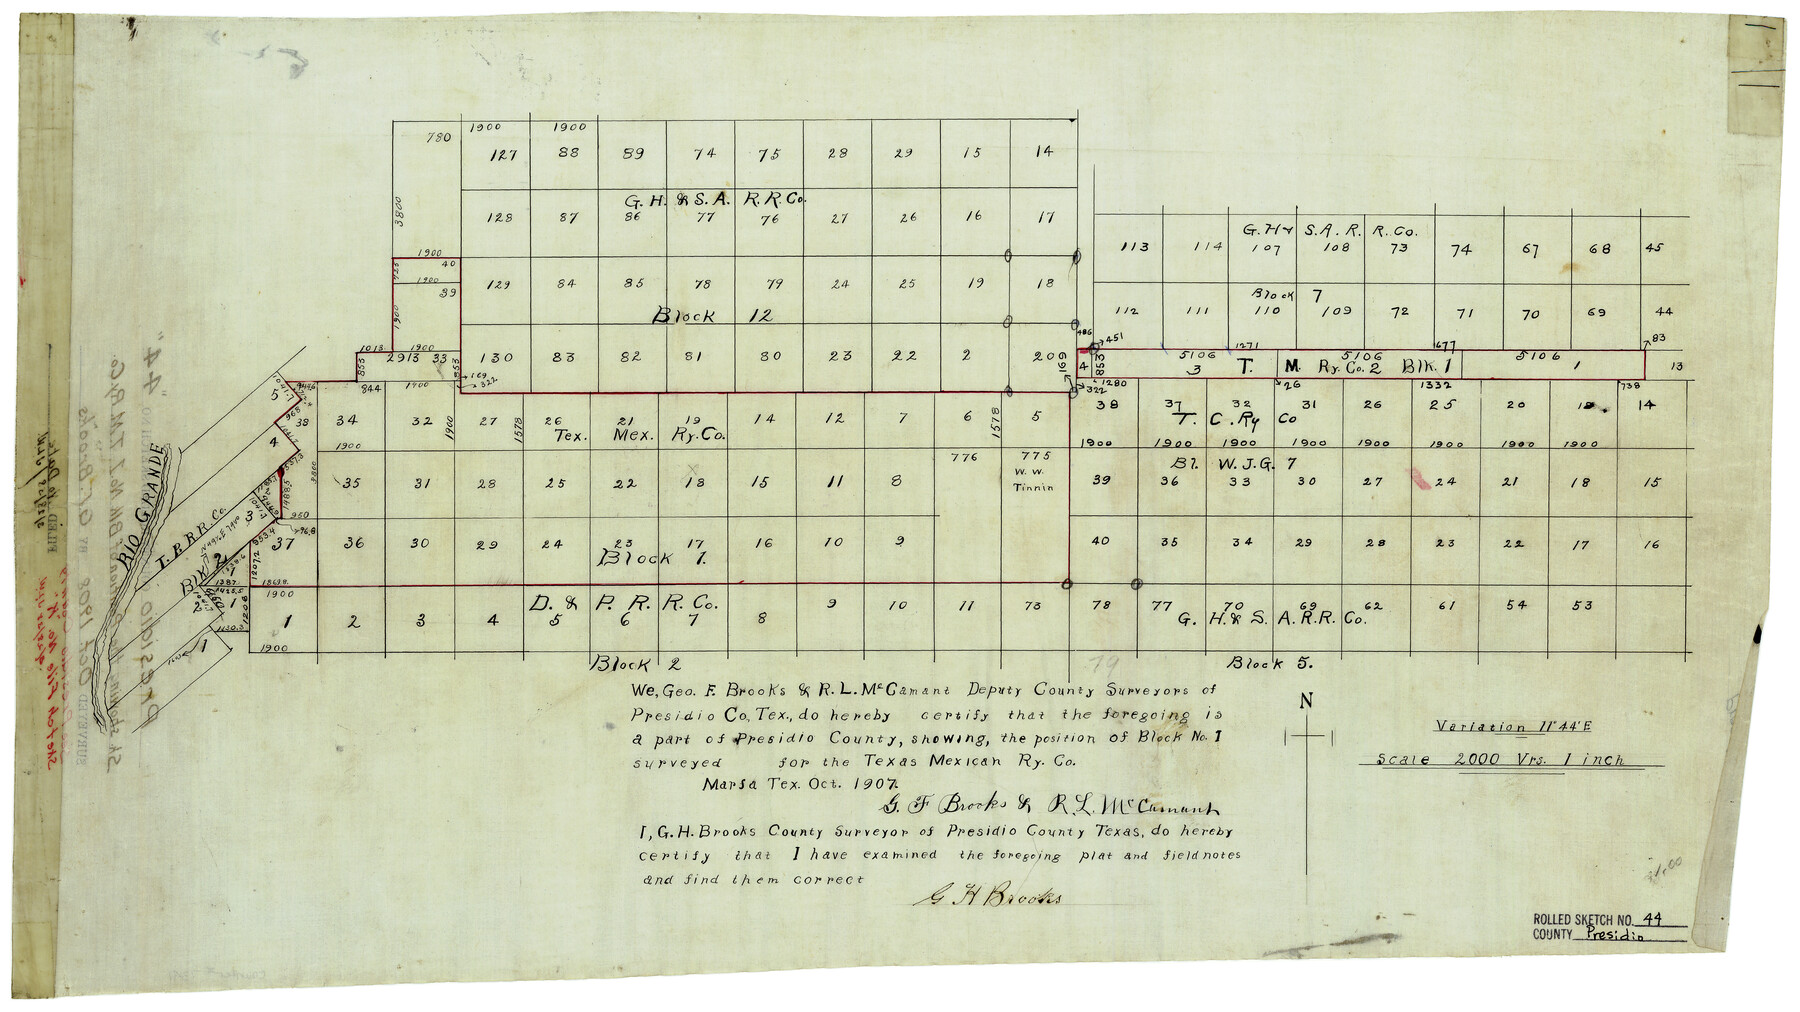 780 1900 1900
127 88 89 74 75 28 29 15 14
G. H. & S. A. R. R. Co.
3800 128 87 86 77 76 27 26 16 17
1900
725 40
1900
39
129 84 85 78 79 24 25 19 18
Block 12
1900
1013 1900
855 2913 33 855 130 83 82 81 80 23 22 2 20
169
322
G. H & S. A. R. R. Co.
113 114 107 108 73 74 67 68 45
Block 7
112 111 110 109 72 71 70 69 44
486 451 1271 677 83
4 853 5106 5106 5106
3 T. M. Ry. Co. 2 Blk. 1 1 13
169 322 1280 26 1332 738
844 1900
34 32 27 26 21 19 14 12 7 6 5
Tex. Mex. Ry. Co.
1900 1900 1578 1578
776 775
W. W.
Tinnin
3800 35 31 28 25 22 18 15 11 8
950
37 36 30 29 24 23 17 16 10 9
Block 1.
38 37 32 31 26 25 20 19 14
T. C. Ry Co
1900 1900 1900 1900 1900 1900 1900 1900
Bl. W. J. G. 7
39 36 33 30 27 24 21 18 15
40 35 34 29 28 23 22 17 16
RIO GRANDE
T. P. R.R. Co.
Blk. 2
5 38 4 3 2 1
968
1988.5
96.8
953.4
1207.2
1369.8
1387
1208
1130.3
1900
D. & P. R. R. Co.
1 2 3 4 5 6 7 8 9 10 11 73
1900
78 77 70 69 62 61 54 53
G. H. & S. A. R. R. Co.
Block 2
79
Block 5.
We, Geo. F. Brooks & R. L. McCamant Deputy County Surveyors of
Presidio Co, Tex., do hereby certify that the foregoing is
a part of Presidio County, showing, the position of Block No. 1
surveyed for the Texas Mexican Ry. Co.
Marfa Tex. Oct. 1907.
G. F Brooks & R. L. McCamant
I, G. H. Brooks County Surveyor of Presidio County Texas, do hereby
certify that I have examined the foregoing plat and fieldnotes
and find them correct
G H Brooks
N
Variation 11°44'E
Scale 2000 Vrs. 1 inch
ROLLED SKETCH NO. 44
COUNTY Presidio